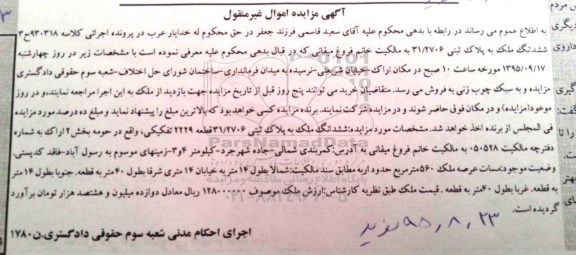 آگهی مزایده اموال غیرمنقول
به اطلاع عموم می رساند در رابطه با بدهی محکوم علیه آقای سعید قاسمی فرزند جعفر در حق محکوم له خدایار عرب در پرونده اجرائی کلاسه ۹۳۰۳۱۸ ح۳
ششدانگ ملک به پلاک ثبتی ۳۱/۲۷۰۶ به مالکیت خانم فروغ میقانی که در قبال بدهی محکوم علیه معرفی نموده است با مشخصات زیر در روز چهارشنبه
۱۳۹۵/۰۹/۱۷ مورخه ساعت ۱۰ صبح در مکان اراک خیابان شریعتی-نرسیده به میدان فرمانداری-ساختمان شورای حل اختلاف-شعبه سوم حقوقی دادگستری
مزایده و به سبک چوب زنی به فروش می رسد. متقاضیان خرید می توانند پنج روز قبل از تاریخ مزایده جهت بازدید از ملک به این اجرا مراجعه نمایند.و در روز
موعود(مزایده) و در مکان فوق حاضر شوند و در مزایده شرکت نمایند. برنده مزایده کسی خواهد بود که بالاترین مبلغ را پیشنهاد نماید و مبلغ ده درصد مورد مزایده
فی المجلس از برنده اخذ خواهد شد. مشخصات مورد مزایده:ششدانگ ملک به پلاک ثبتی ۳۱/۲۷۰۶ قطعه ۲۲۲۹ تفکیکی، واقع در حومه بخش ۲ اراک به شماره
دفترچه مالکیت ۰۵۰۵۲۸ به مالکیت خانم فروغ میقانی به آدرس:کمربندی شمالی-جاده شهرجرد-کیلومتر ۴و۳-زمینهای موسوم به رسول آباد-فاقد کدپستی.
وضعیت موجود:مساحت عرصه ملک ۵۶۰مترمربع حدود اربعه مطابق سند مالکیت:شمالا بطول ۱۴متر به خیابان ۱۴ متری شرقا بطول ۴۰متر به قطعه. جنوبا بطول ۱۴ متر
به قطعه. غربا بطول ۴۰متر به قطعه. قیمت ملک طبق نظریه کارشناس:ارزش ملک موصوف ۱۲۸۰۰۰۰۰۰ ریال معادل دوازده میلیون و هشتصد هزار تومان برآورد
گردیده است.
اجرای احکام مدنی شعبه سوم حقوقی دادگستری.ن۱۷۸۰
۸،۲۳